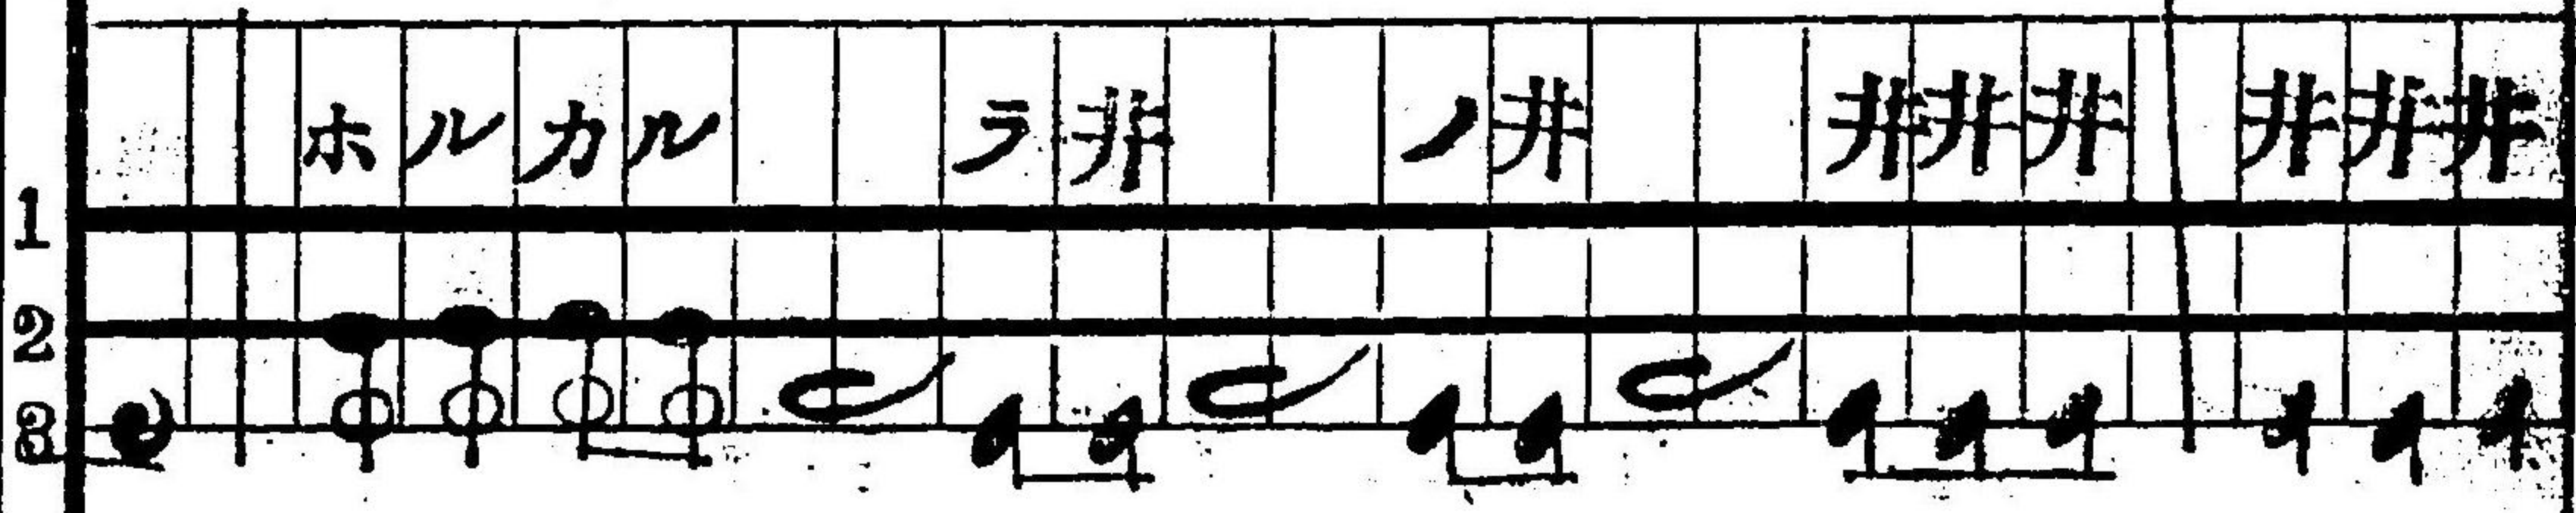 ホルカル ラ井 ノ井 井井井 井井井
1
2
3